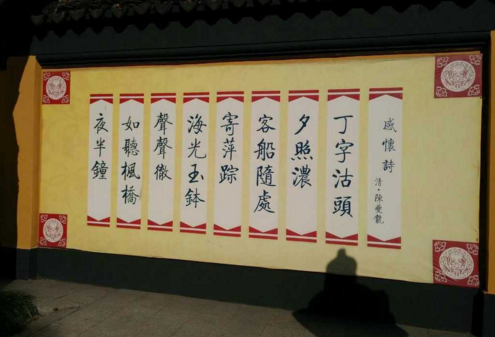 感懷詩
清·陳
丁字沽頭
夕照濃
客船隨處
寄萍踪
海光玉鉢
聲聲徹
如聽楓橋
夜半鐘